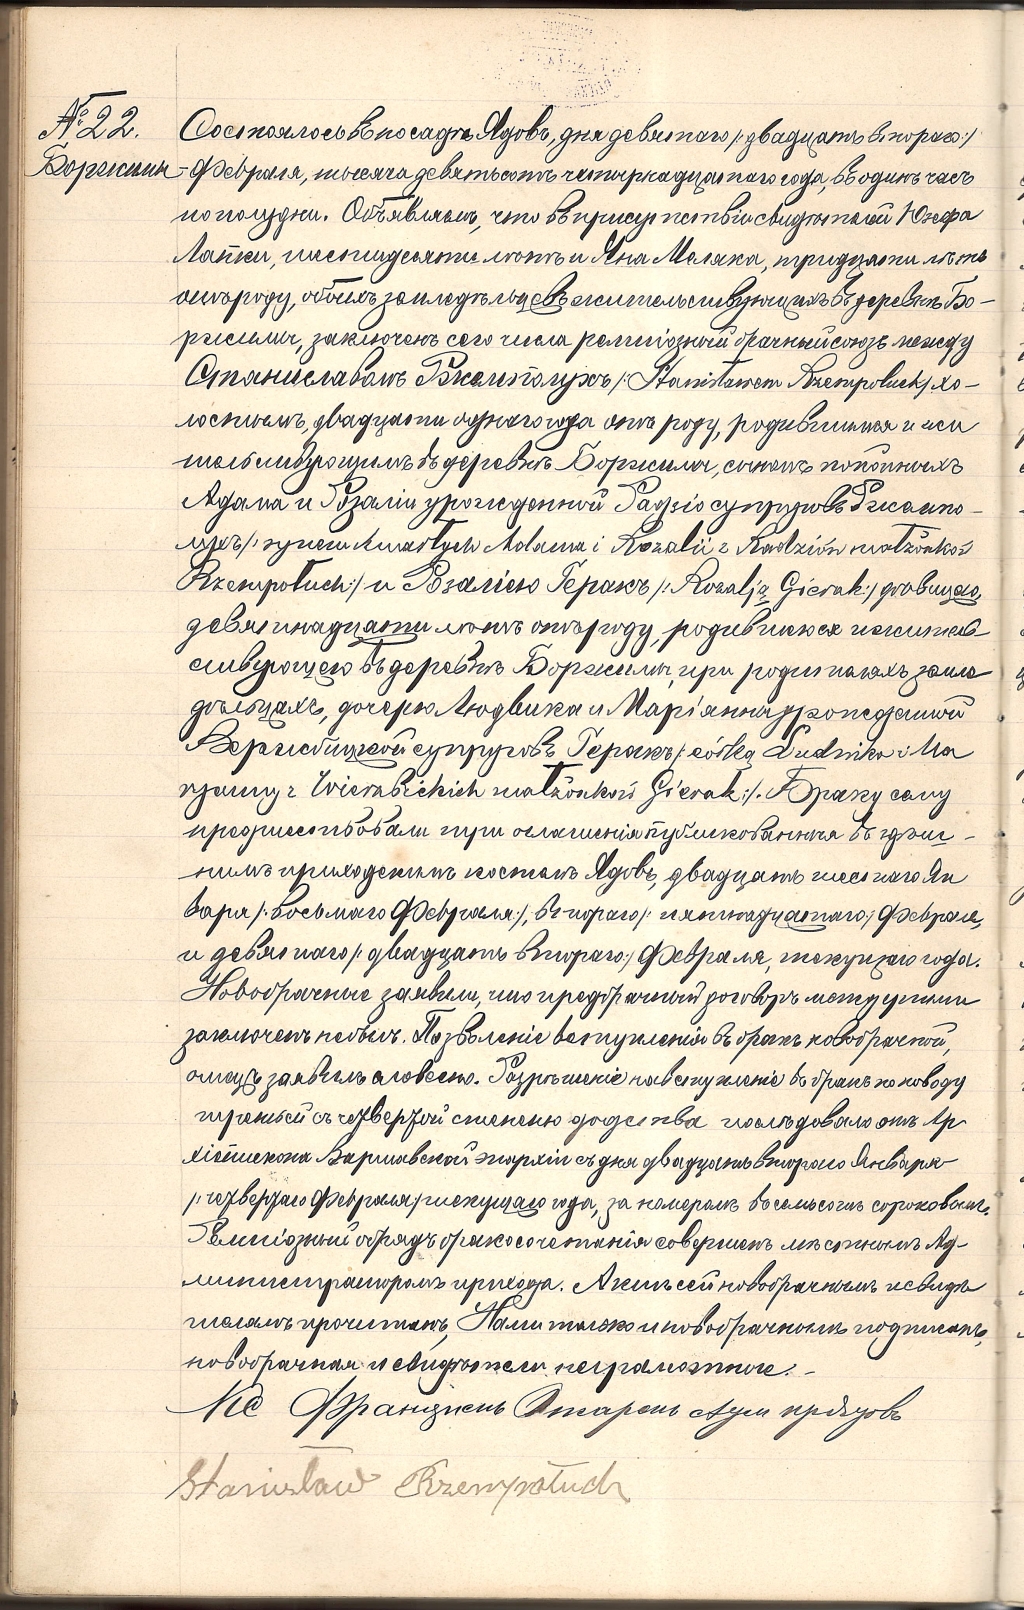 № 22.
Боржимы
Состоялось въ посадѣ Ядовъ, дня девятаго /: двадцать втораго :/
Февраля, тысяча девятьсотъ четырнадцатаго года, въ одинъ часъ
пополудни. Объявляемъ, что въ присутствіи свидѣтелей Юзефа
Лапки, шестидесяти лѣтъ и Яна Масяка, тридцати лѣтъ
отъ роду, обоихъ земледѣльцевъ жительствующихъ въ деревнѣ Бо-
ржимы, заключенъ сего числа религіозный брачный союзъ между
Станиславомъ Ржемполухъ /: Stanisławem Rzempołuch :/ хо-
лостымъ, двадцати одного года отъ роду, родившимся и жи
тельствующимъ въ деревнѣ Боржимы, сыномъ покойныхъ
Адама и Розаліи урожденной Радзіо супруговъ Ржемпо-
лухъ /: synem zmarłych Adama i Rozalii z Radziów małżonków
Rzempołuch :/ и Розаліею Геракъ /: Rozalją Gierak :/ дѣвицею,
девятнадцати лѣтъ отъ роду, родившеюся и житель
ствующею въ деревнѣ Боржимы, при родителяхъ земле
дѣльцахъ, дочерью Людвика и Маріянны урожденной
Вержбицкой супруговъ Геракъ /: córką Ludwika i Ma
ryanny z Wierzbickich małżonków Gierak :/. Браку сему
предшествовали три оглашенія публикованныя въ здѣш-
нимъ приходскимъ костелѣ Ядовъ, двадцать шестаго Ян
варя /: восьмаго Февраля :/, втораго /: пятнадцатаго :/ Февраля,
и девятаго /: двадцать втораго :/ Февраля, текущаго года.
Новобрачные заявили, что предбрачный договоръ между ними
заключенъ не былъ. Позволеніе вступленія въ бракъ новобрачной,
отецъ заявилъ словесно. Разрѣшеніе на вступленіе въ бракъ по поводу
третьей съ четвертой степенью родства послѣдовало отъ Ар
хіепископа Варшавской эпархіи съ дня двадцать втораго Января
/: четвертаго Февраля :/ текущаго года, за номеромъ восемьсотъ сороковымъ.
Религіозный обрядъ бракосочетанія совершенъ мѣстнымъ Ад-
министраторомъ прихода. Актъ сей новобрачнымъ и свидѣ
телямъ прочитанъ, Нами только и новобрачнымъ подписанъ,
новобрачная и свидѣтели неграмотные. -
Кс Францискъ
Stanisław Rzempołuch